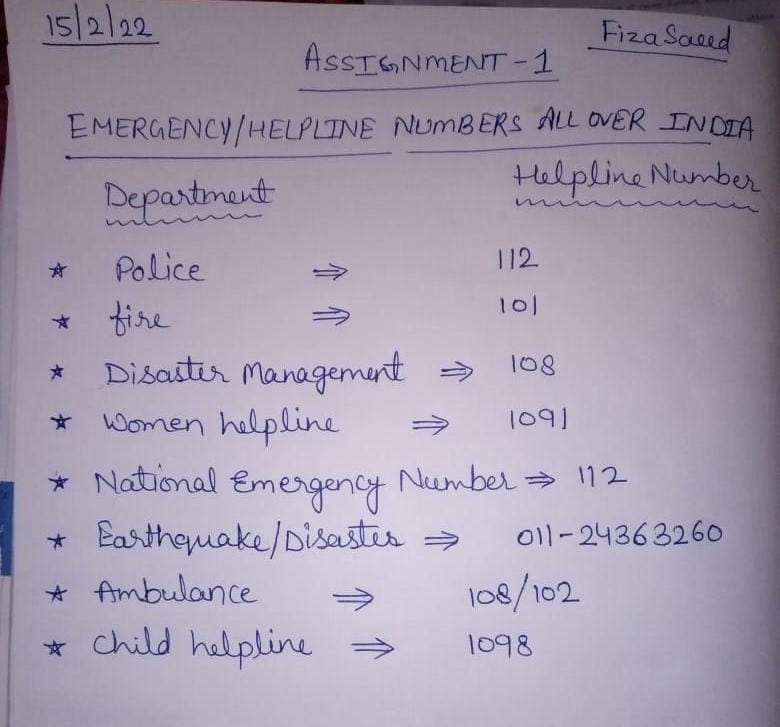 15/2/22 Fiza Saeed
ASSIGNMENT-1
EMERGENCY/HELPLINE NUMBERS ALL OVER INDIA
Department Helpline Number
☆ Police ⇒ 112
☆ fire ⇒ 101
☆ Disaster Management ⇒ 108
☆ Women helpline ⇒ 1091
☆ National Emergency Number ⇒ 112
☆ Earthquake/Disaster ⇒ 011-24363260
☆ Ambulance ⇒ 108/102
☆ Child helpline ⇒ 1098